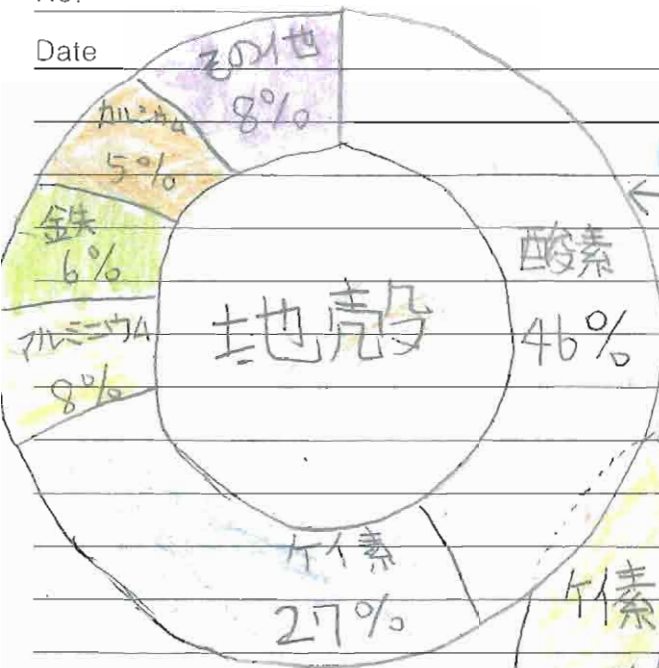 Date
その他
8%
カルシウム
5%
鉄
6%
アルミニウム
8%
地殻
酸素
46%
ケイ素
27%
ケイ素